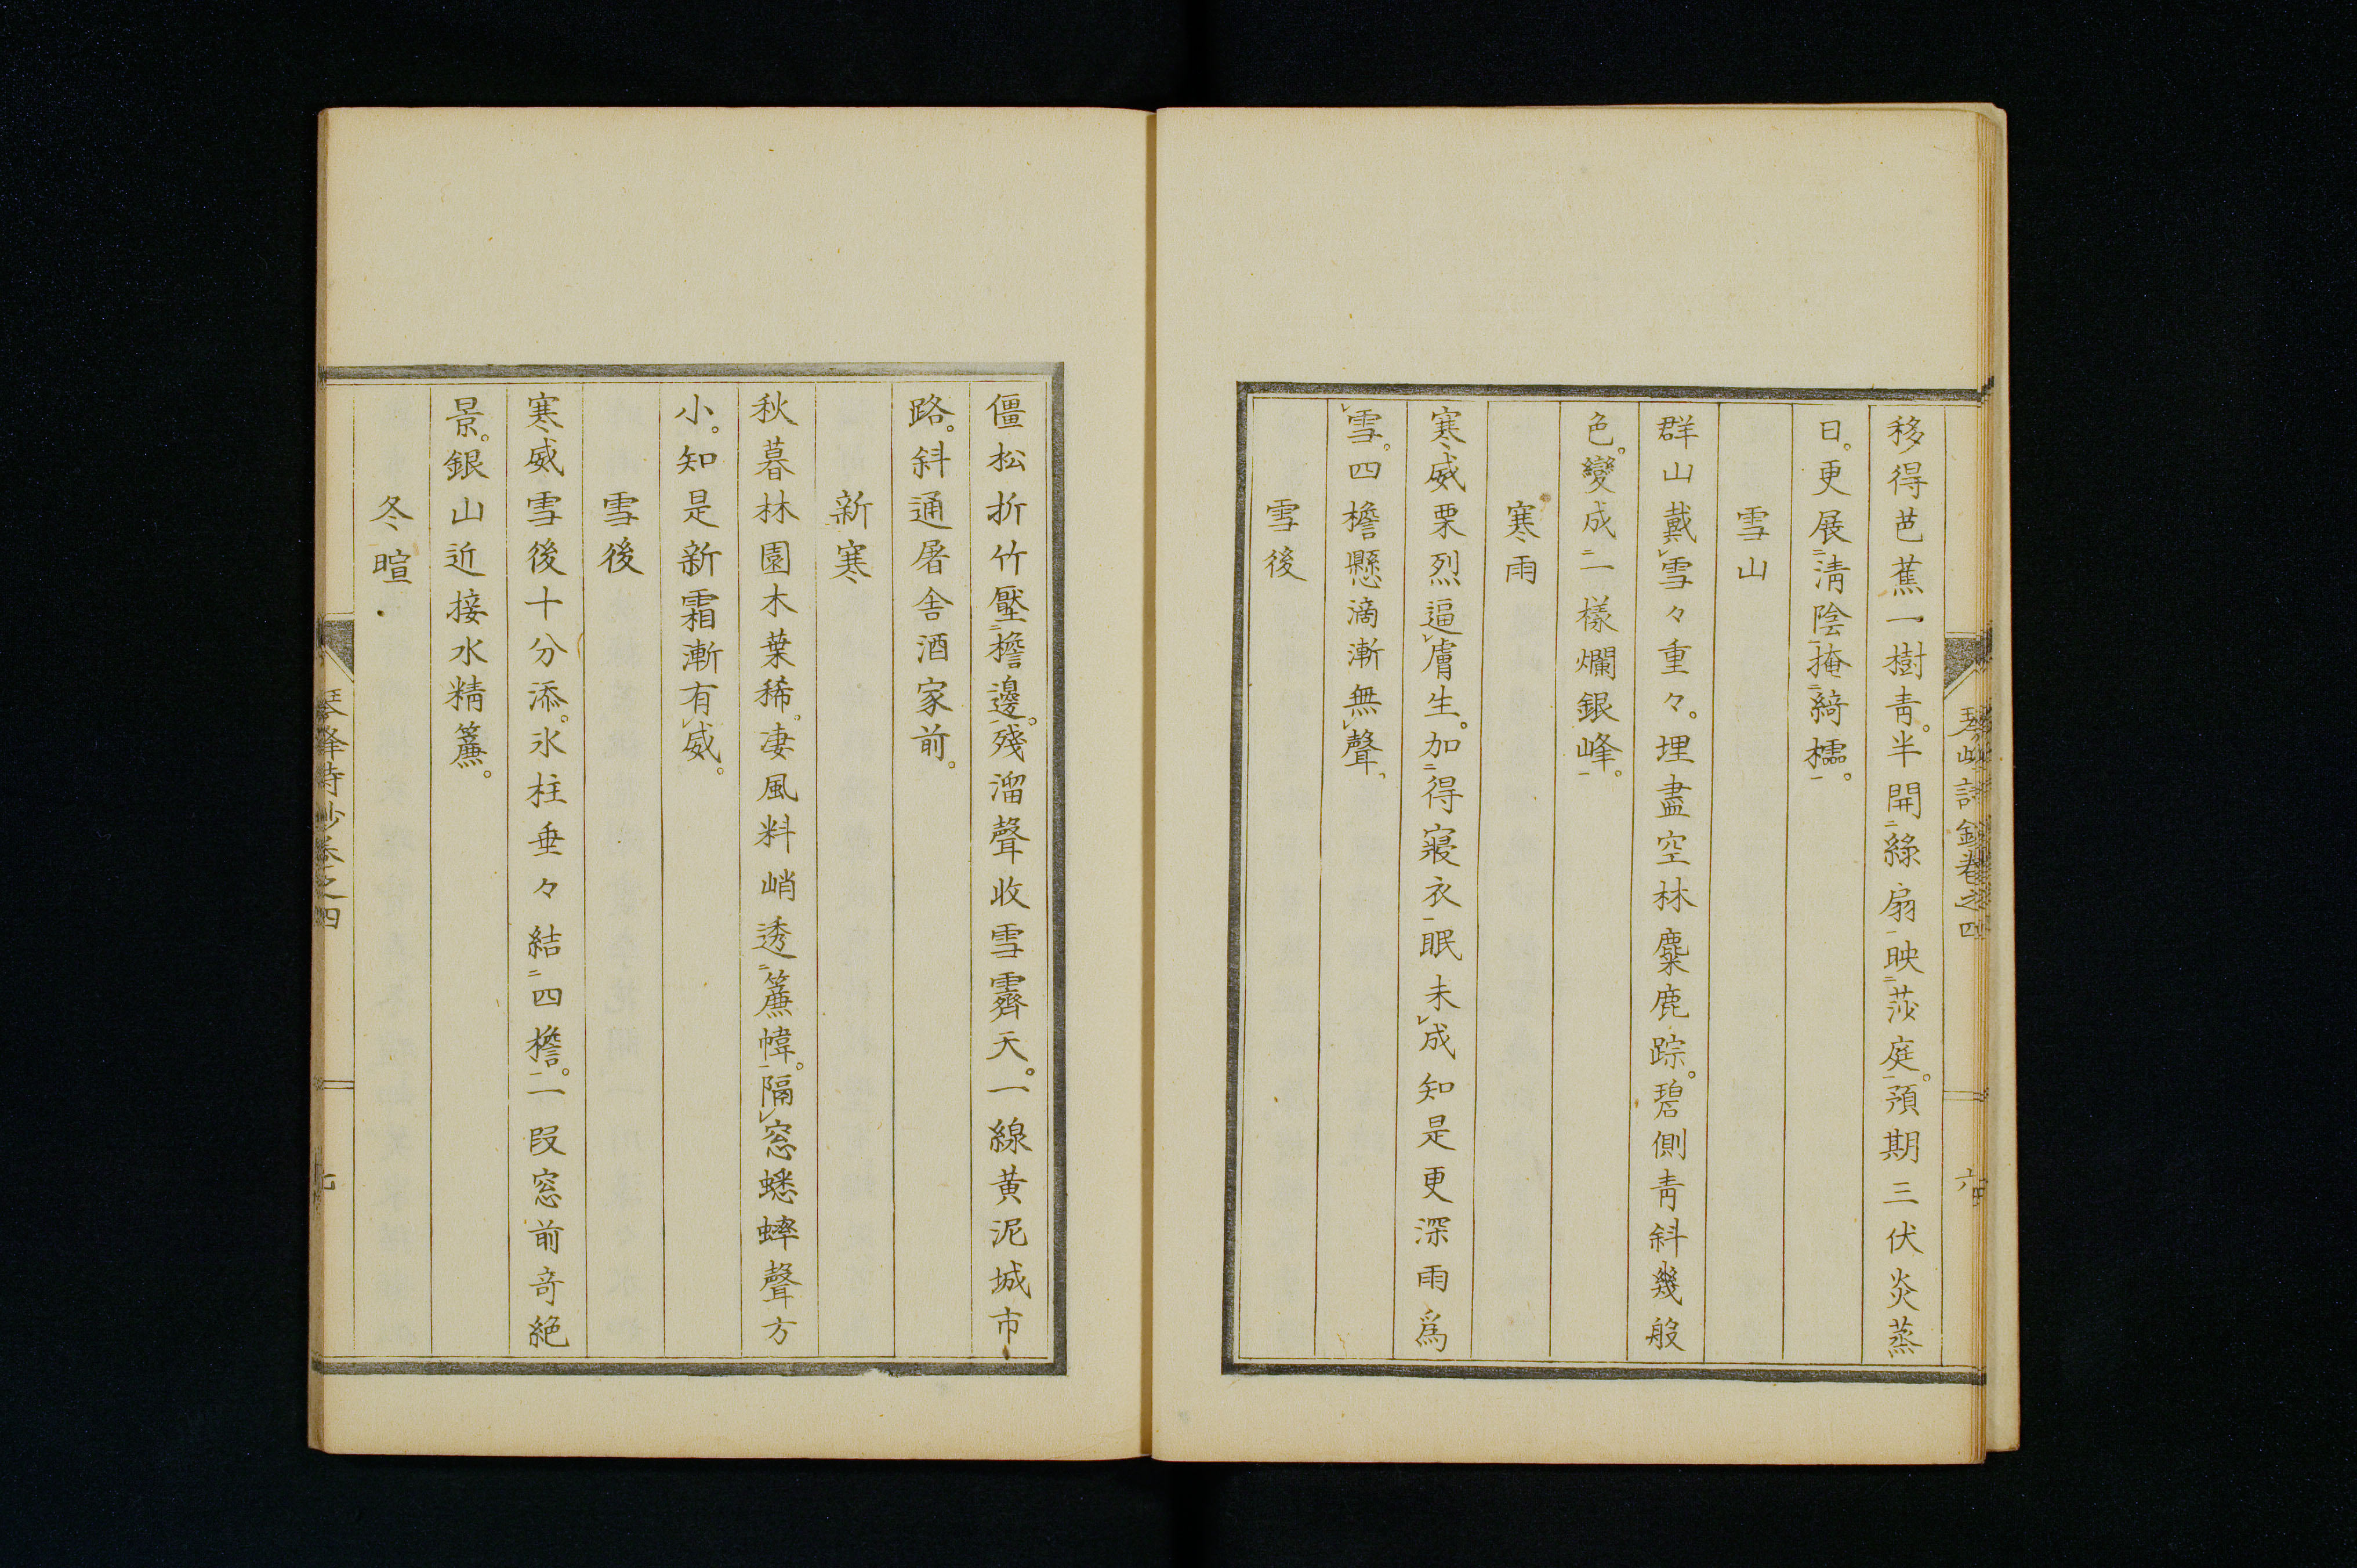 移得芭蕉一樹青。半開綠扇映莎庭。預期三伏炎蒸
日。更展清陰掩綺櫺。
雪山
群山戴雪々重々。埋盡空林麋鹿踪。碧側青斜幾般
色。變成一樣爛銀峰。
寒雨
寒威栗烈逼膚生。加得寢衣眠未成知是更深雨爲
雪。四檐懸滴漸無聲、
雪後
琴峰詩鈔卷之四
六
僵松折竹壓檐邊。殘溜聲收雪霽天。一線黃泥城市
路。斜通屠舍酒家前。
新寒
秋暮林園木葉稀。凄風料峭透簾幃。隔窓蟋蟀聲方
小。知是新霜漸有威。
雪後
寒威雪後十分添。氷柱垂々結四檐。一段窓前奇絶
景。銀山近接水精簾。
冬暄
琴峰詩鈔卷之四
七